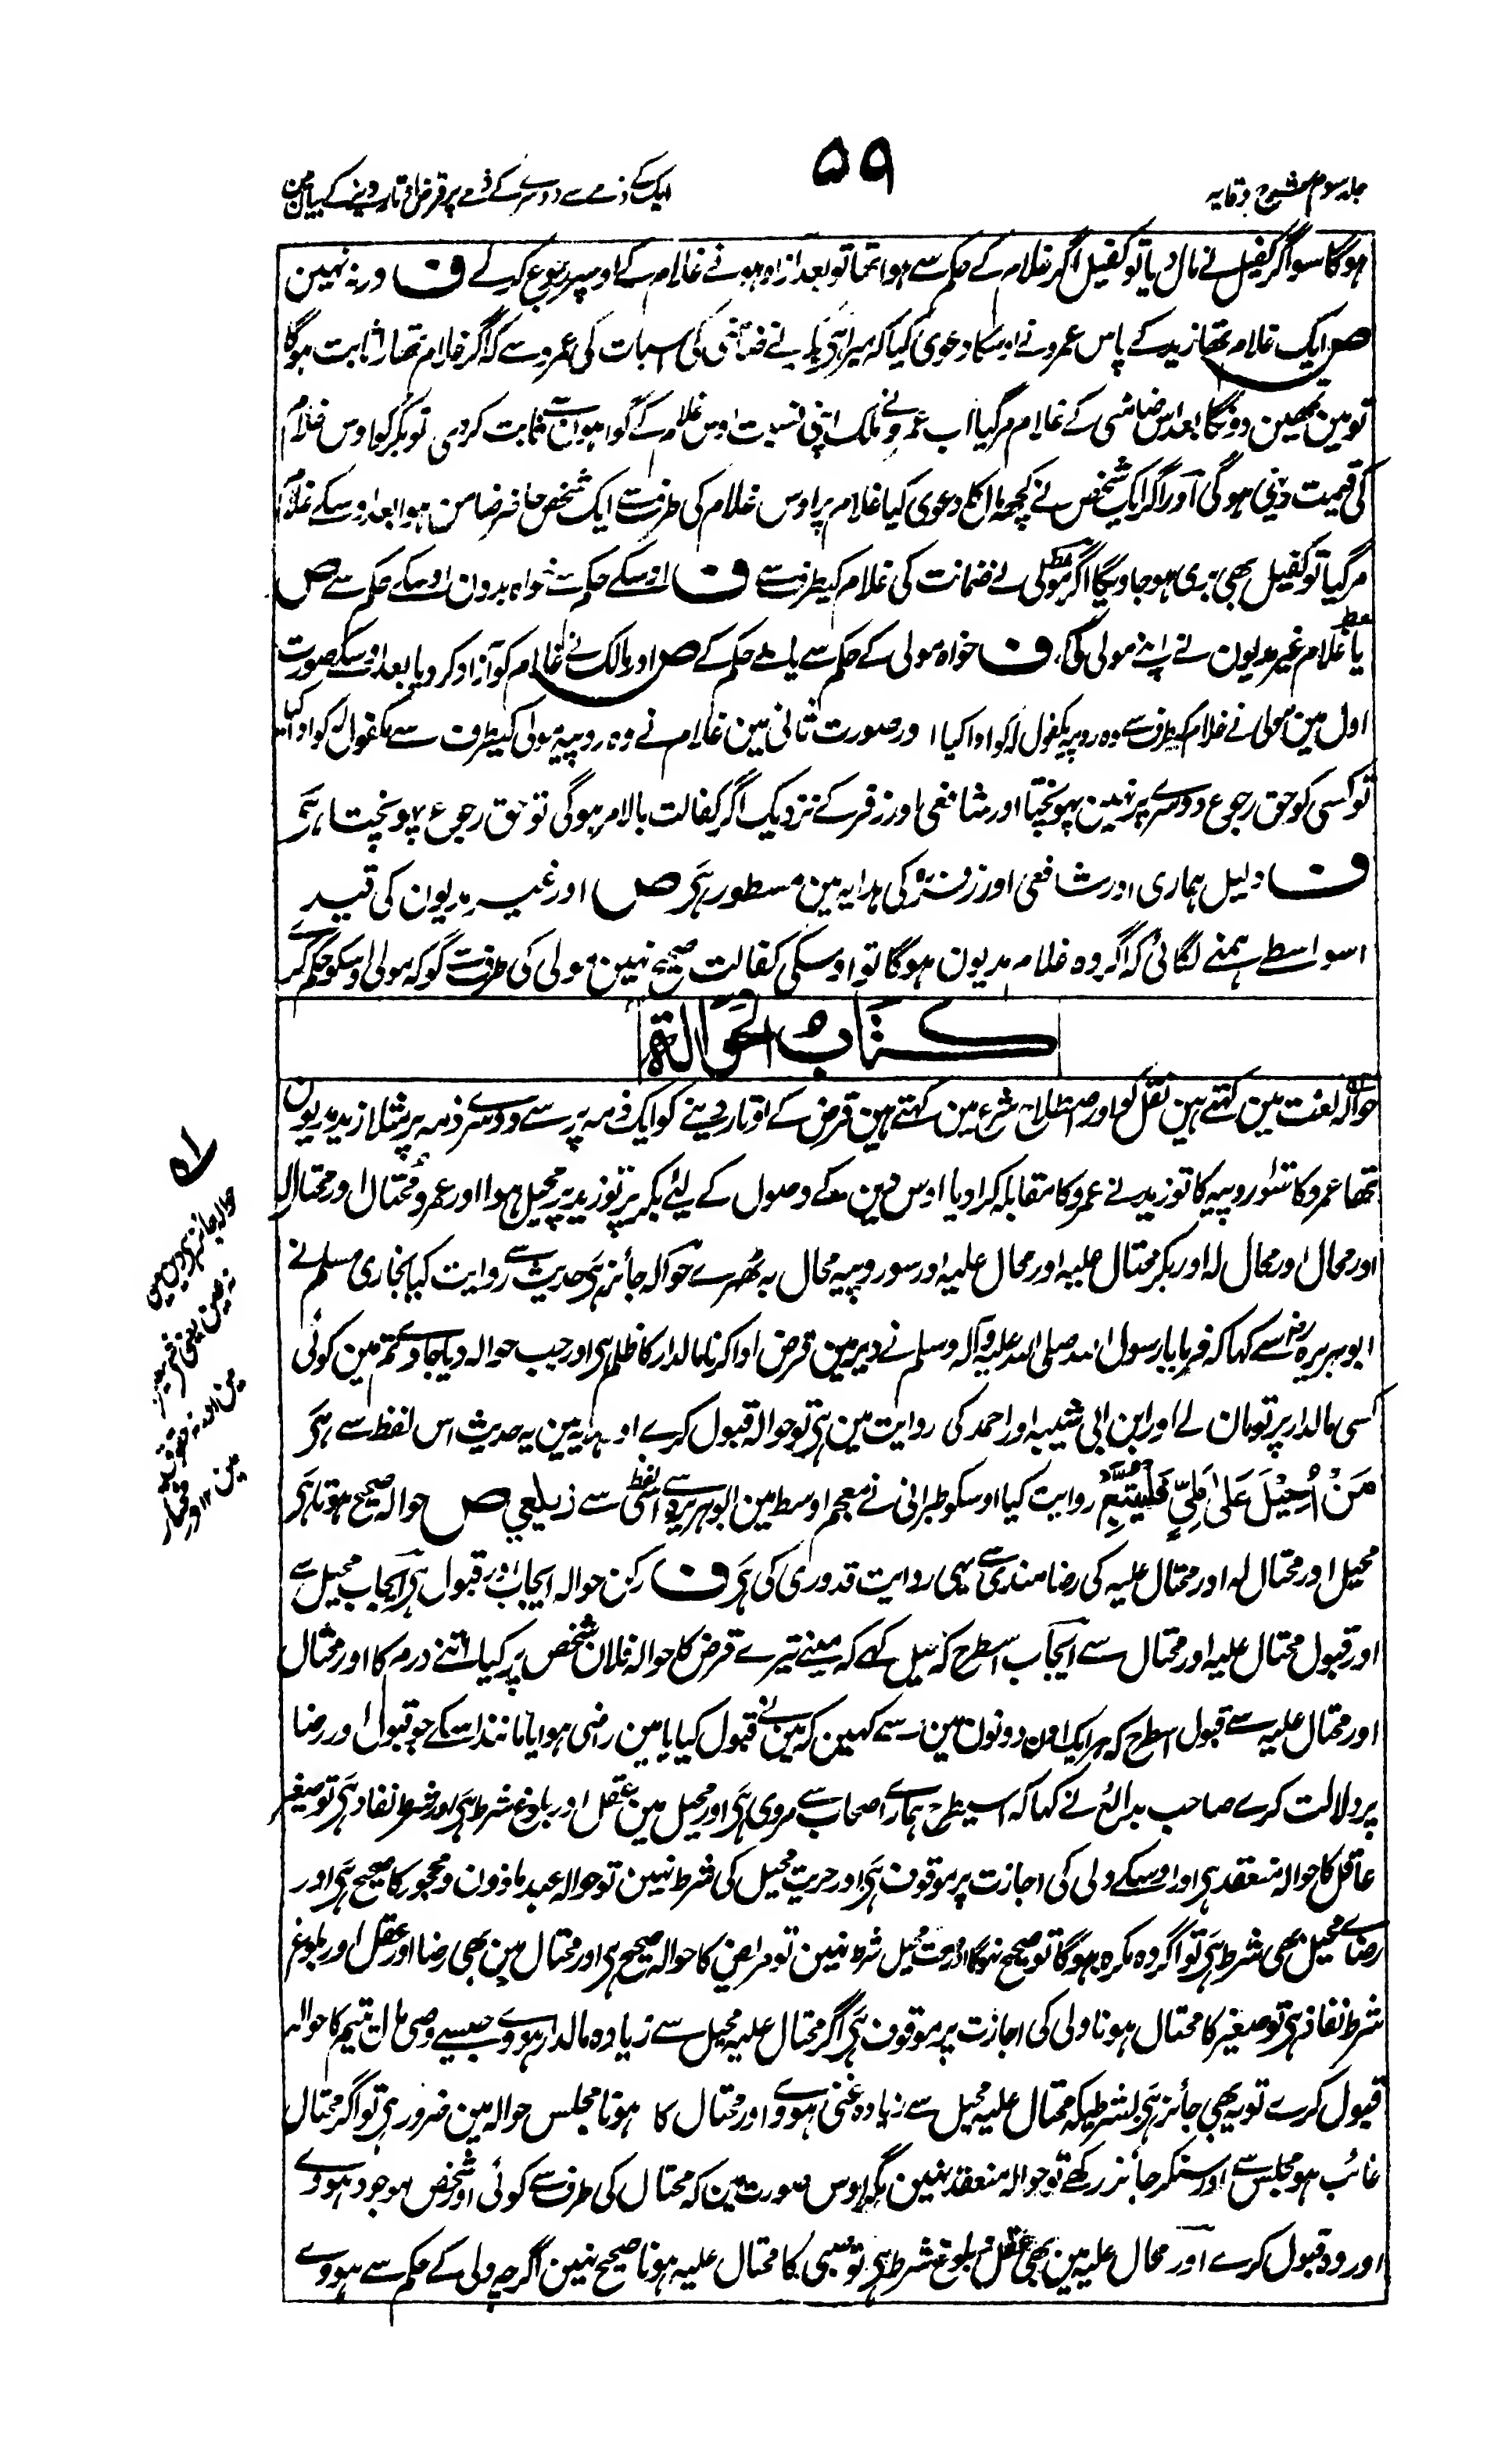 جلد سوم شرح وقایہ
۵۹
ایک کے ذمے سے دوسرے کے ذمے پر قرض اوتار دینے کے بیان مین
ہوگا سو اگر کفیل نے مال دیا تو کفیل اگر غلام کے حکم سے ہوا تھا تو بعد آزاد ہونے غلام کے اوسپر رجوع کرلے ف ورنہ نہین
ص ایک غلام تھا زید کے پاس عمرو نے اوسکا دعویٰ کیا کہ میرا ہی بکر نے ضامنی کی اسبات کی عمرو سے کہ اگر غلام تمھارا ثابت ہوگا
تو مین تمھین دونگا بعد اس ضامنی کے غلام مرگیا اب عمرو نے ملک اپنی نسبت اوس غلام کے گواہون سے ثابت کردی تو بکر کو اوس غلام
کی قیمت دینی ہوگی اور اگر ایک شخص نے کچھ مال کا دعویٰ کیا غلام پر اوس غلام کی طرف سے ایک شخص حاضر ضامن ہوا بعد اوسکے غلام
مرگیا تو کفیل بھی بری ہوجاویگا اگر مولیٰ نے ضمانت کی غلام کیطرف سے ف اوسکے حکم سے خواہ بدون اوسکے حکم سے ص
یا غلام غیر مدیون نے اپنے مولی کی ف خواہ مولی کے حکم سے یا بے حکم کے ص اور مالک نے غلام کو آزاد کردیا بعد اوسکے صورت
اول مین مولی نے غلام کیطرف سے وہ روپیہ مکفول لہ کو ادا کیا اور صورت ثانی مین غلام نے وہ روپیہ مولی کیطرف سے مکفول لہ کو ادا کیا
تو کسی کو حق رجوع دوسرے پر نہین پہونچتا اور شافعی اور زفر کے نزدیک اگر کفالت بالامر ہوگی تو حق رجوع پہونچتا ہی
ف دلیل ہماری اور شافعی اور زفرؒ کی ہدایہ مین مسطور ہی ص اور غیر مدیون کی قید
اسواسطے ہمنے لگائی کہ اگر وہ غلام مدیون ہوگا تو اوسکی کفالت صحیح نہین مولی کی طرف سے گو کہ مولی اوسکو حکم کرے
کتاب الحوالۃ
حوالہ لغت مین کہتے ہین نقل کو اور اصطلاح شرع مین کہتے ہین قرض کے اوتار دینے کو ایک ذمہ پر سے دوسرے ذمہ پر مثلا زید مدیون
تھا عمرو کا سو روپیہ کا تو زید نے عمرو کا مقابلہ کرا دیا اوس دین کے وصول کے لئے بکر پر تو زید محیل ہوا اور عمرو محتال اور محتال لہ
اور محال اور محال لہ اور بکر محتال علیہ اور محال علیہ اور سو روپیہ محال بہ ٹھہرے حوالہ جائز ہی حدیث سے روایت کیا بخاری مسلم نے
ابوہریرہ رضہ سے کہا کہ فرمایا رسول اللہ صلی اللہ علیہ وآلہ وسلم نے دیر مین قرض ادا کرنا مالدار کا ظلم ہی اور جب حوالہ دیا جاوے تم مین کوئی
کسی مالدار پر تو مان لے اور ابن ابی شیبہ اور احمد کی روایت مین ہی تو حوالہ قبول کرے اور ہدایہ مین یہ حدیث اس لفظ سے ہی
مَنْ اُحِیْلَ عَلیٰ مَلِیٍّ فَلْیَتَّبِعْ روایت کیا اوسکو طبرانی نے معجم اوسط مین ابوہریرہ سے اسی لفظ سے زیلعي ص حوالہ صحیح ہوتا ہی
محیل اور محتال لہ اور محتال علیہ کی رضامندی سے یہی روایت قدوری کی ہی ف رکن حوالہ ایجاب اور قبول ہی ایجاب محیل سے
اور قبول محتال علیہ اور محتال سے ایجاب اسطرح کہ محیل کہے کہ مینے تیرے قرض کا حوالہ فلان شخص پر کیا اتنے درم کا اور محتال
اور محتال علیہ سے قبول اسطرح کہ ہر ایک اون دونون مین سے کہین کہ مین نے قبول کیا یا مین راضی ہوا یا مانند اسکے جو قبول اور رضا
پر دلالت کرے صاحب بدائع نے کہا کہ اسیطرح ہمارے اصحاب سے مروی ہی اور محیل مین عقل اور بلوغ شرط ہی اور شرط نفاذ ہی تو صغیر
عاقل کا حوالہ منعقد ہی اور اوسکے ولی کی اجازت پر موقوف ہی اور حریت محیل کی شرط نہین تو حوالہ عبد ماذون و محجور کا صحیح ہی اور
رضاے محیل بھی شرط ہی تو اگر وہ مکرہ ہوگا تو صحیح نہوگا اور صحت محیل شرط نہین تو مریض کا حوالہ صحیح ہی اور محتال مین بھی رضا اور عقل اور بلوغ
شرط نفاذ ہی تو صغیر کا محتال ہونا ولی کی اجازت پر موقوف ہی اگر محتال علیہ محیل سے زیادہ مالدار ہووے جیسے وصی مال یتیم کا حوالہ
قبول کرے تو یہ بھی جائز ہی بشرطیکہ محتال علیہ محیل سے زیادہ غنی ہووے اور محتال کا ہونا مجلس حوالہ مین ضرور ہی تو اگر محتال
غائب ہو مجلس سے اور سنکر جائز رکھے تو حوالہ منعقد نہین مگر اوس صورت مین کہ محتال کی طرف سے کوئی اور شخص موجود ہووے
اور وہ قبول کرے اور محال علیہ مین بھی عقل اور بلوغ شرط ہی تو صبی کا محتال علیہ ہونا صحیح نہین اگرچہ ولی کے حکم سے ہووے
حوالہ جائز ہی دین مین
نہ عین یعنی